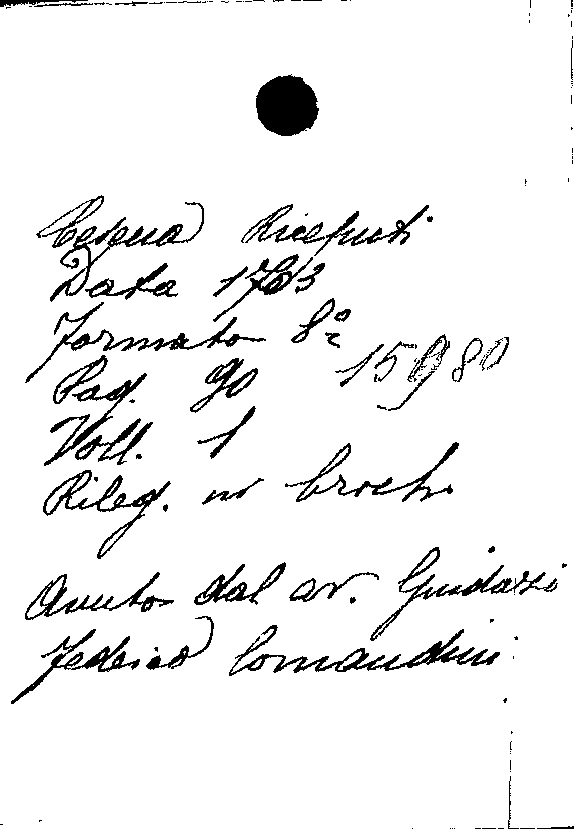 Cesena Riceputi
Data 1763
Formato 8º
Pag. 90 15980
Voll. 1
Rileg. in broch.
Avuto dal av. Guidazzi
Federico Comandini